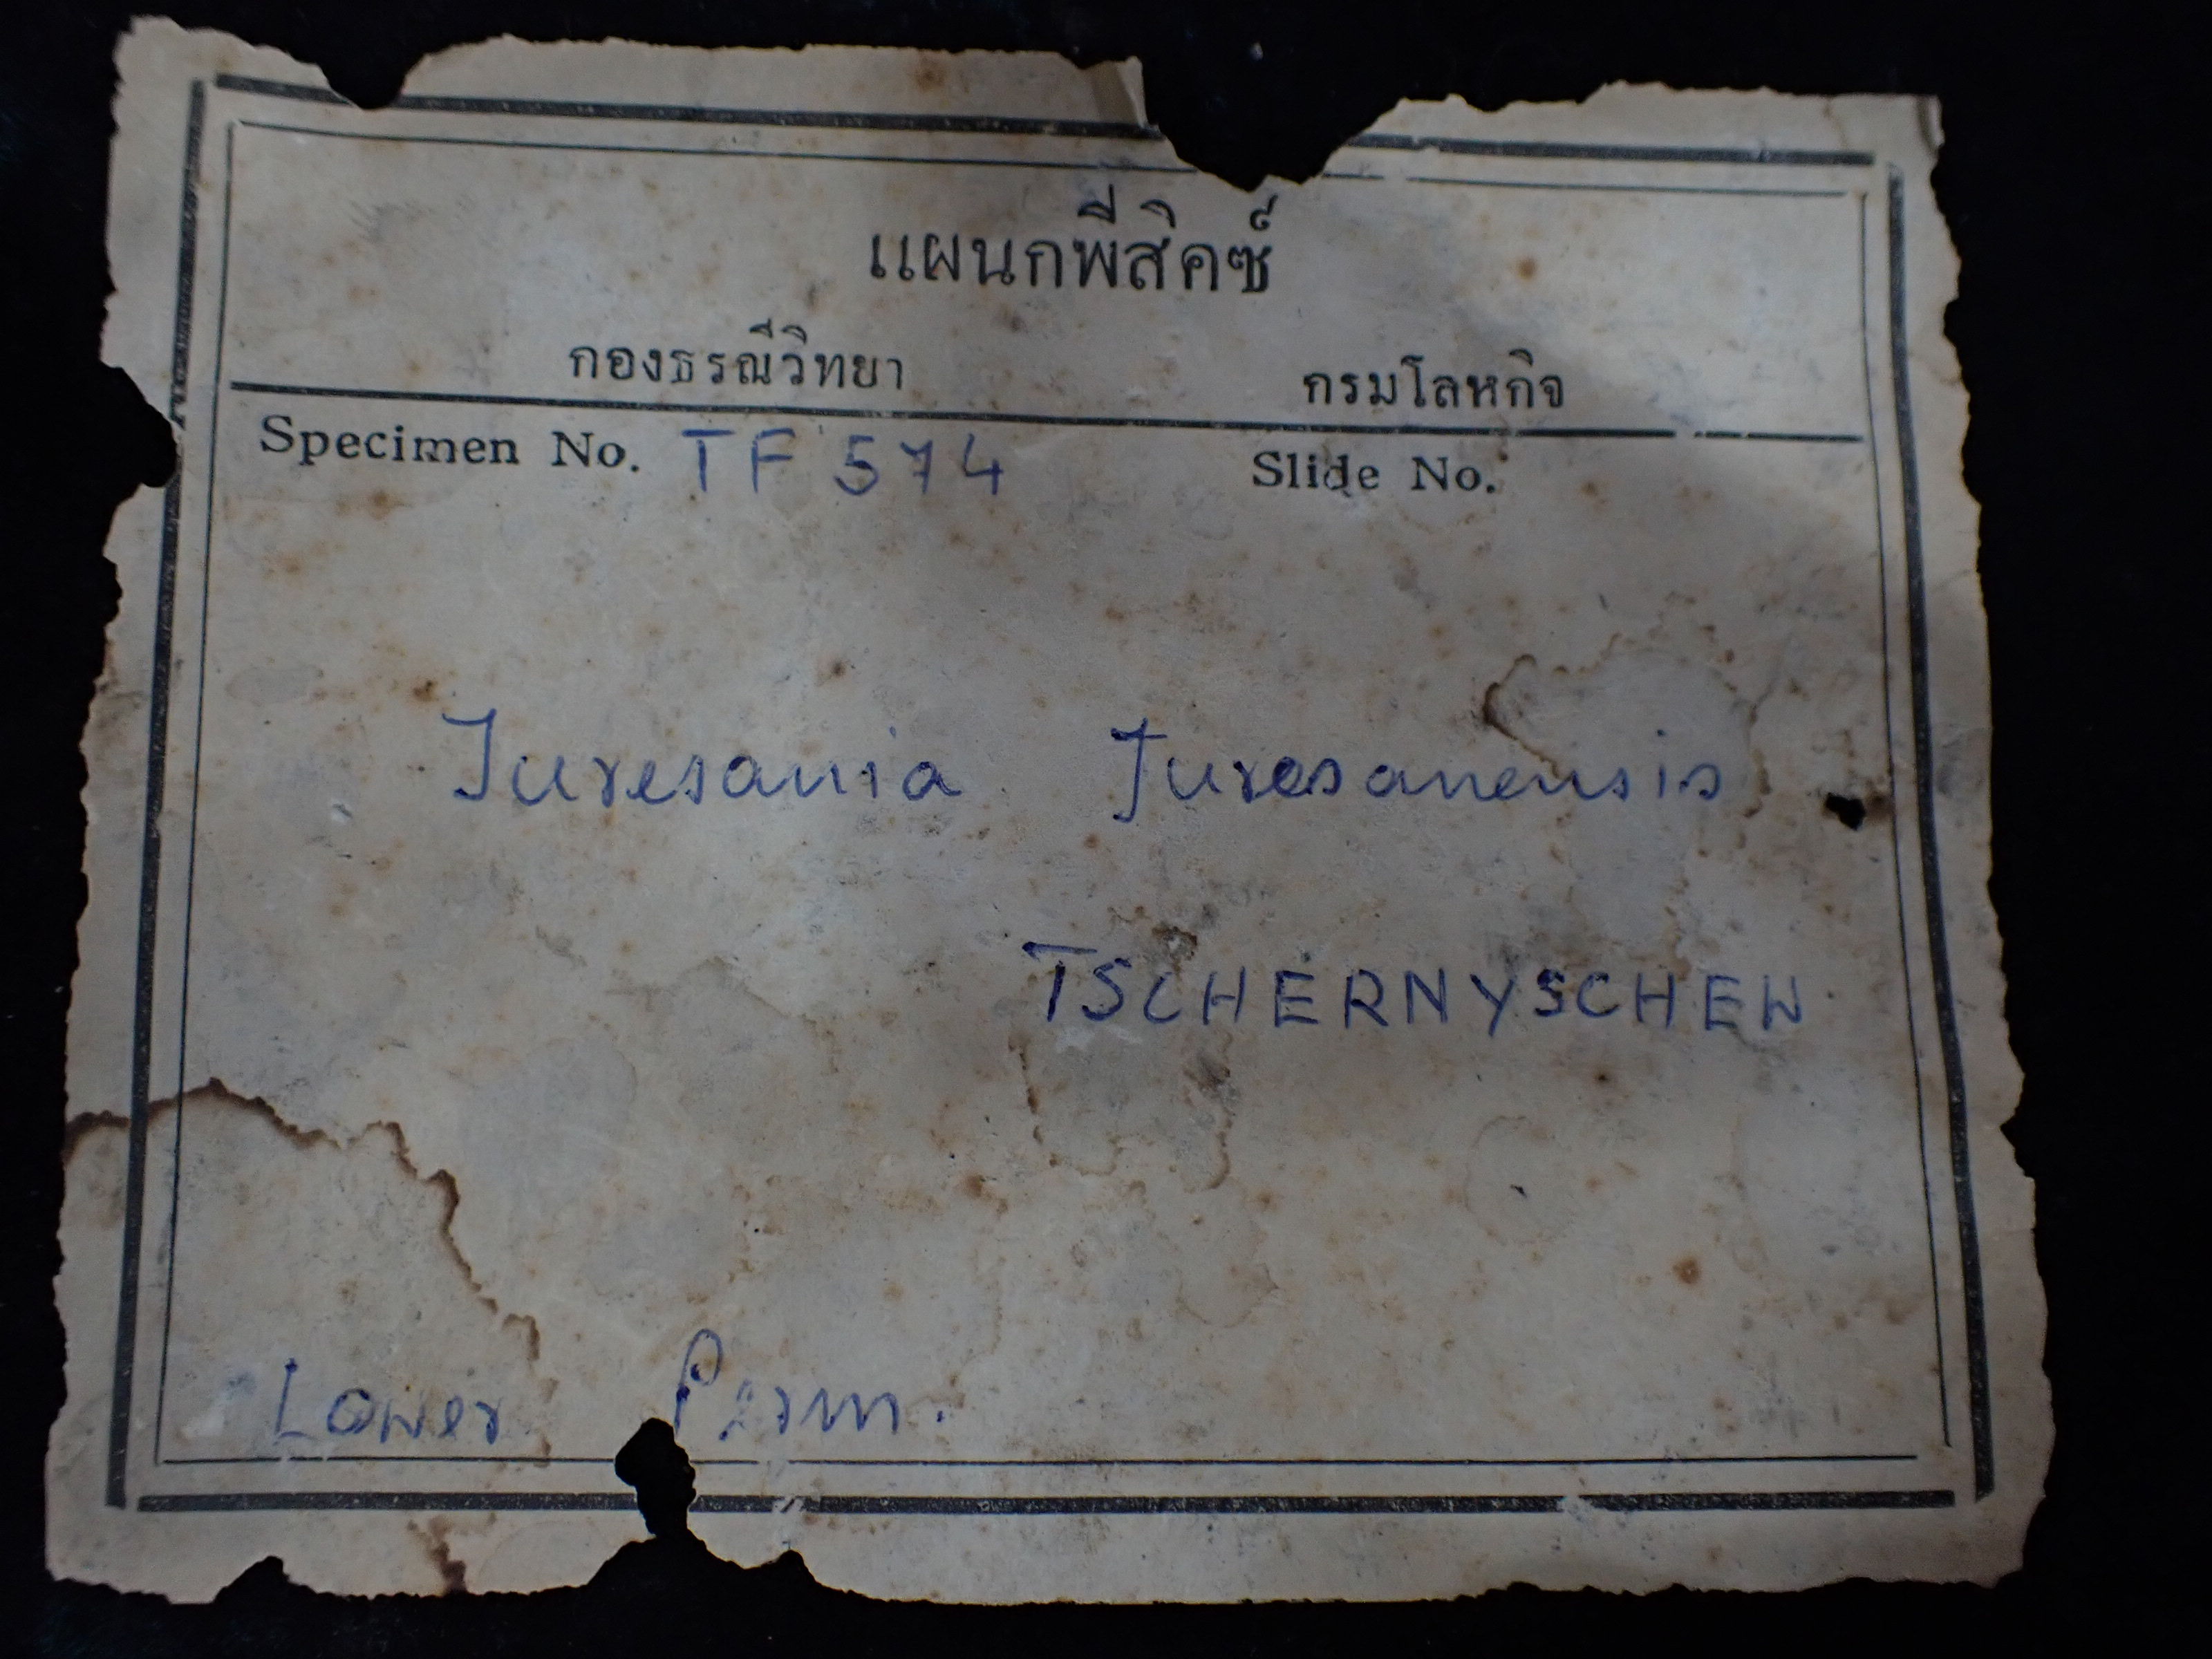 แผนกพีสิคซ์
กองธรณีวิทยา กรมโลหกิจ
Specimen No. TF 574 Slide No.
Juresania Juresanensis
TSCHERNYSCHEW
Lower Perm.